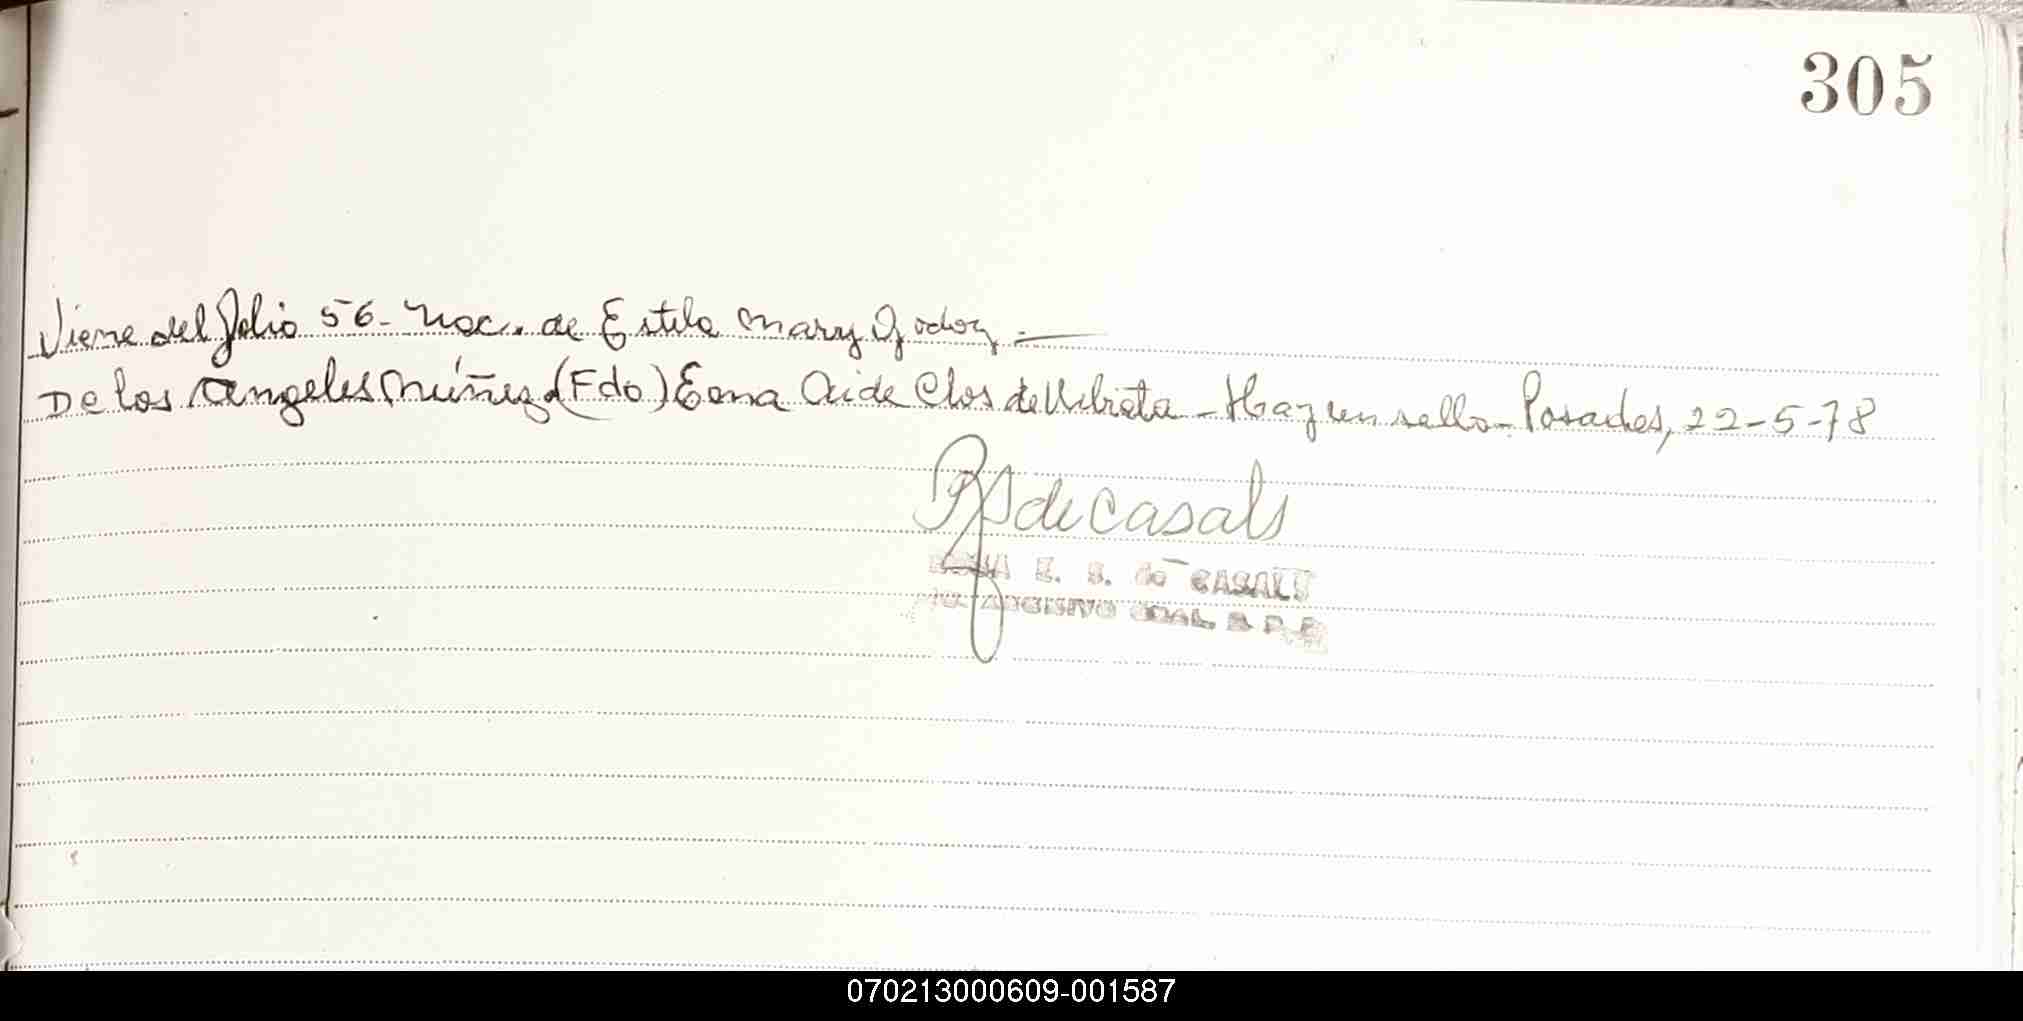 305
Viene del folio 56- Nac. de Estela Mary Godoy.—
De los Angeles Núñez (Fdo) Ema Aide Clos de - Hay un sello - Posadas, 22-5-78
de Casals
E. S. de CASALS
ARCHIVO GRAL.
070213000609-001587